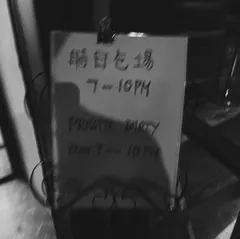 晴自包場
7 - 10PM
PRIVATE PARTY
7 - 10PM